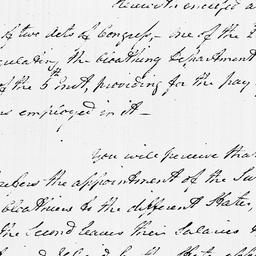 herewith enclosed a
of two acts of Congress, - one of the 2
culating the cloathing Department
of the 5th inst, providing for the pay
ns employed in it -
You will perceive that
the appointment of the Su
Cloathiers to the different States,
the Second leaves their Salaries t